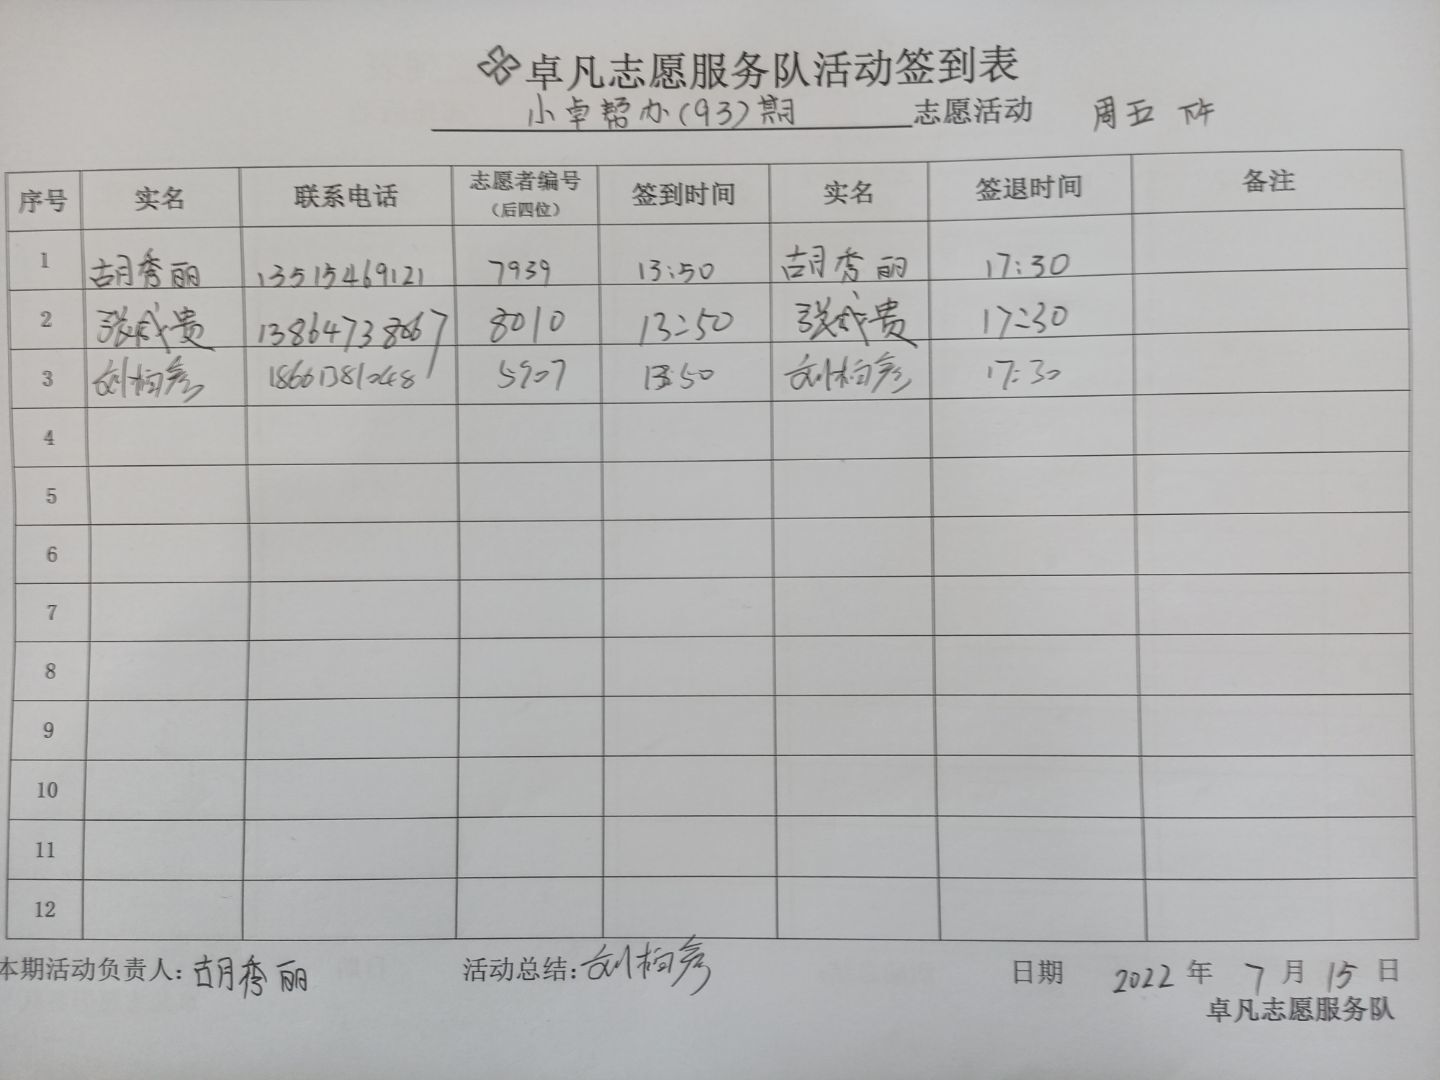 卓凡志愿服务队活动签到表
小卓帮办(93)期 志愿活动 周五 下午
序号 实名 联系电话 志愿者编号(后四位) 签到时间 实名 签退时间 备注
1 胡秀丽 13515469121 7939 13:50 胡秀丽 17:30
2 张成贵 13864738667 8010 13:50 张成贵 17:30
3 刘柏彦 18661381048 5907 13:50 刘柏彦 17:30
4
5
6
7
8
9
10
11
12
本期活动负责人: 胡秀丽 活动总结: 刘柏彦 日期 2022 年 7 月 15 日
卓凡志愿服务队